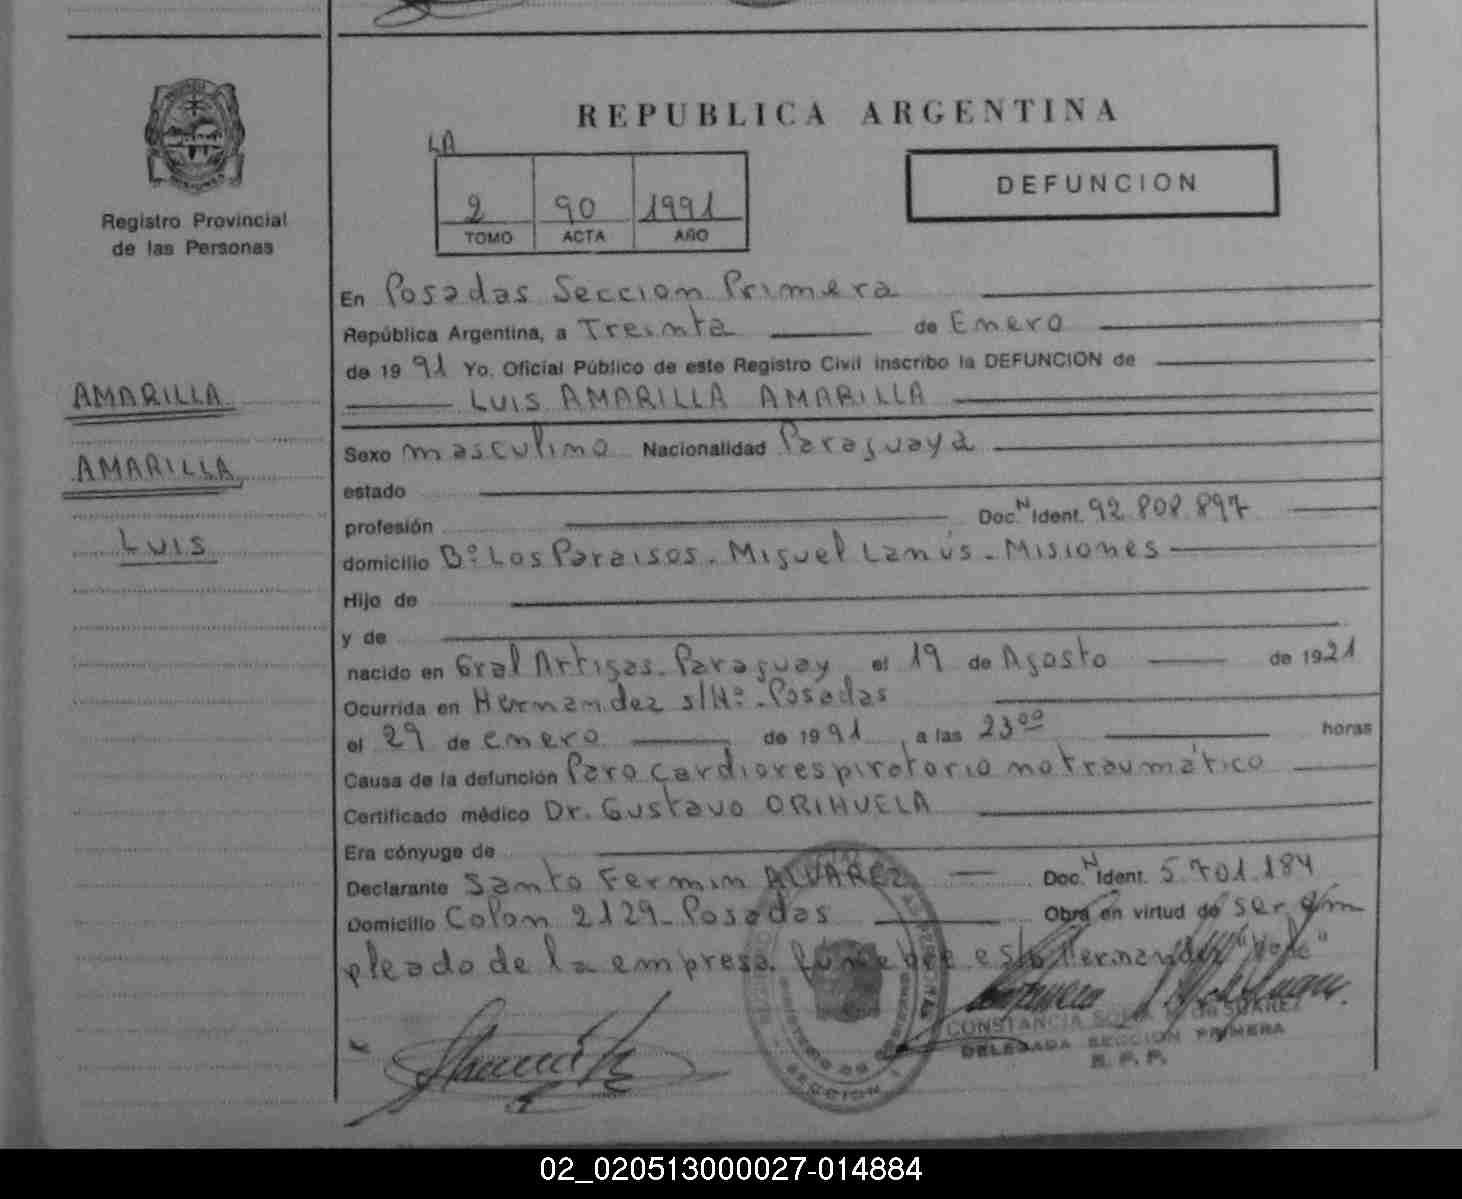 REPUBLICA ARGENTINA
LA
2 90 1991
TOMO ACTA AÑO
DEFUNCION
Registro Provincial
de las Personas
AMARILLA
AMARILLA
LUIS
En Posadas Seccion Primera
República Argentina, a Treinta de Enero
de 1991 Yo, Oficial Público de este Registro Civil inscribo la DEFUNCION de
LUIS AMARILLA AMARILLA
Sexo masculino Nacionalidad Paraguaya
estado
profesión Doc. N Ident. 92.808.897
domicilio Bº Los Paraisos. Miguel Lanús - Misiones
Hijo de
y de
nacido en Gral Artigas - Paraguay el 19 de Agosto de 1921
Ocurrida en Hernandez s/Nº - Posadas
el 29 de enero de 1991, a las 23⁰⁰ horas
Causa de la defunción Paro cardiorespiratorio no traumático
Certificado médico Dr. Gustavo ORIHUELA
Era cónyuge de
Declarante Santo Fermin ALVAREZ Doc. N Ident. 5.701.184
Domicilio Colon 2129 - Posadas Obra en virtud de ser em
pleado de la empresa funebre esta Hernandez
CONSTANCIA SUAREZ
DELEGADA SECCION PRIMERA
R. P. P.
02_020513000027-014884